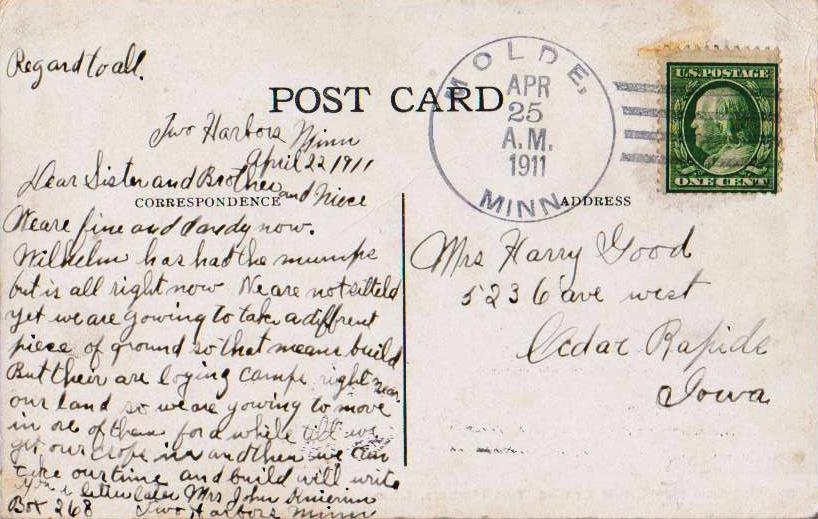 Regard to all.
POST CARD
Two Harbors Minn
April 22 1911
Dear Sister and Brother and Niece
CORRESPONDENCE
We are fine and dandy now.
Wilhelm has had the mumps
but is all right now We are not sitteld
yet we are gowing to take a diffrent
piece of ground so that means build
But their are loging camps right near
our land so we are gowing to move
in one of them for a while till we
get our crops in and then we can
take our time and build will write
you a letter later Mrs John
Box 268 Two Harbors Minn
MOLDE,
APR
25
A.M.
1911
MINN.
U.S. POSTAGE
ONE CENT
ADDRESS
Mrs Harry Good
523 6 ave west
Cedar Rapids
Iowa